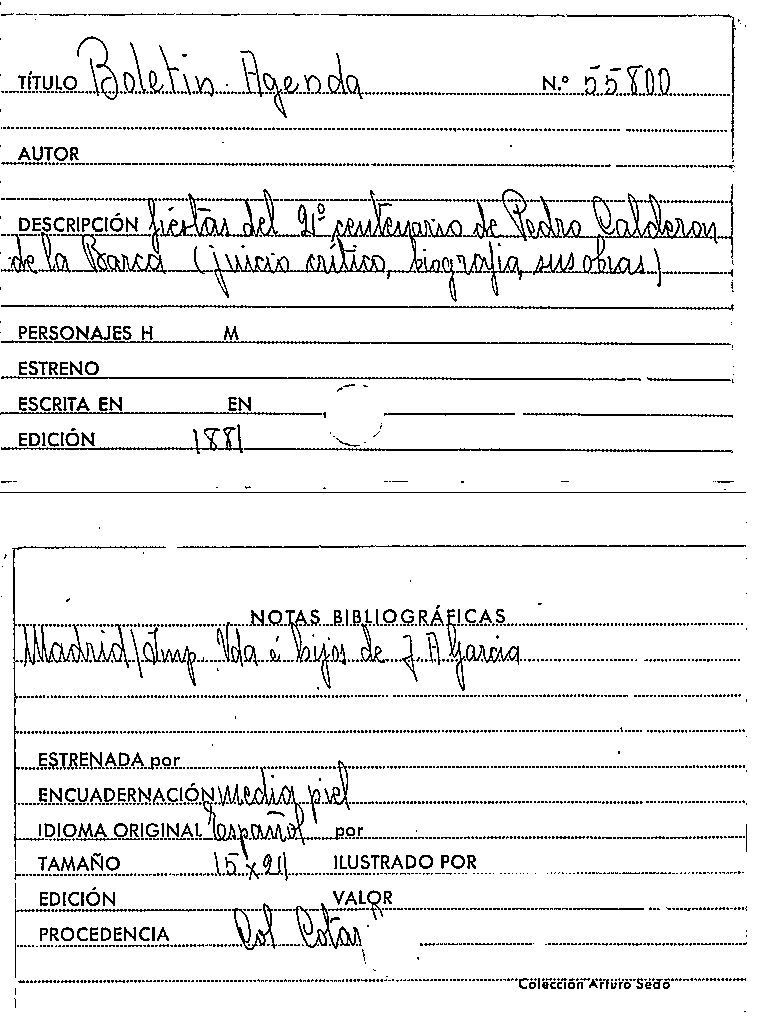 TÍTULO Boletin-Agenda N.º 55800
AUTOR
DESCRIPCIÓN fiestas del 2º centenario de Pedro Calderon
de la Barca (juicio crítico, biografia, sus obras)
PERSONAJES H M
ESTRENO
ESCRITA EN EN
EDICIÓN 1881
NOTAS BIBLIOGRÁFICAS
Madrid/Imp. Vda é hijos de J. A Garcia
ESTRENADA por
ENCUADERNACIÓN media piel
IDIOMA ORIGINAL español por
TAMAÑO 15 x 21 ILUSTRADO POR
EDICIÓN VALOR
PROCEDENCIA Col Cotar
Colección Arturo Sedó